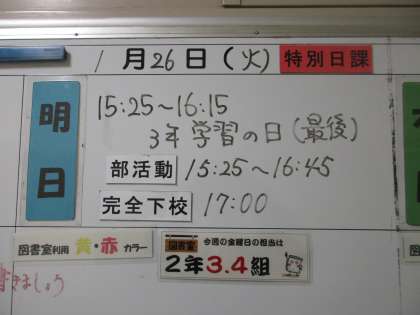 1月26日(火) 特別日課
明日
15:25〜16:15
3年 学習の日(最後)
部活動 15:25〜16:45
完全下校 17:00
図書室利用 黄・赤 カラー
図書室 今週の金曜日の担当は
2年3.4組
きましょう